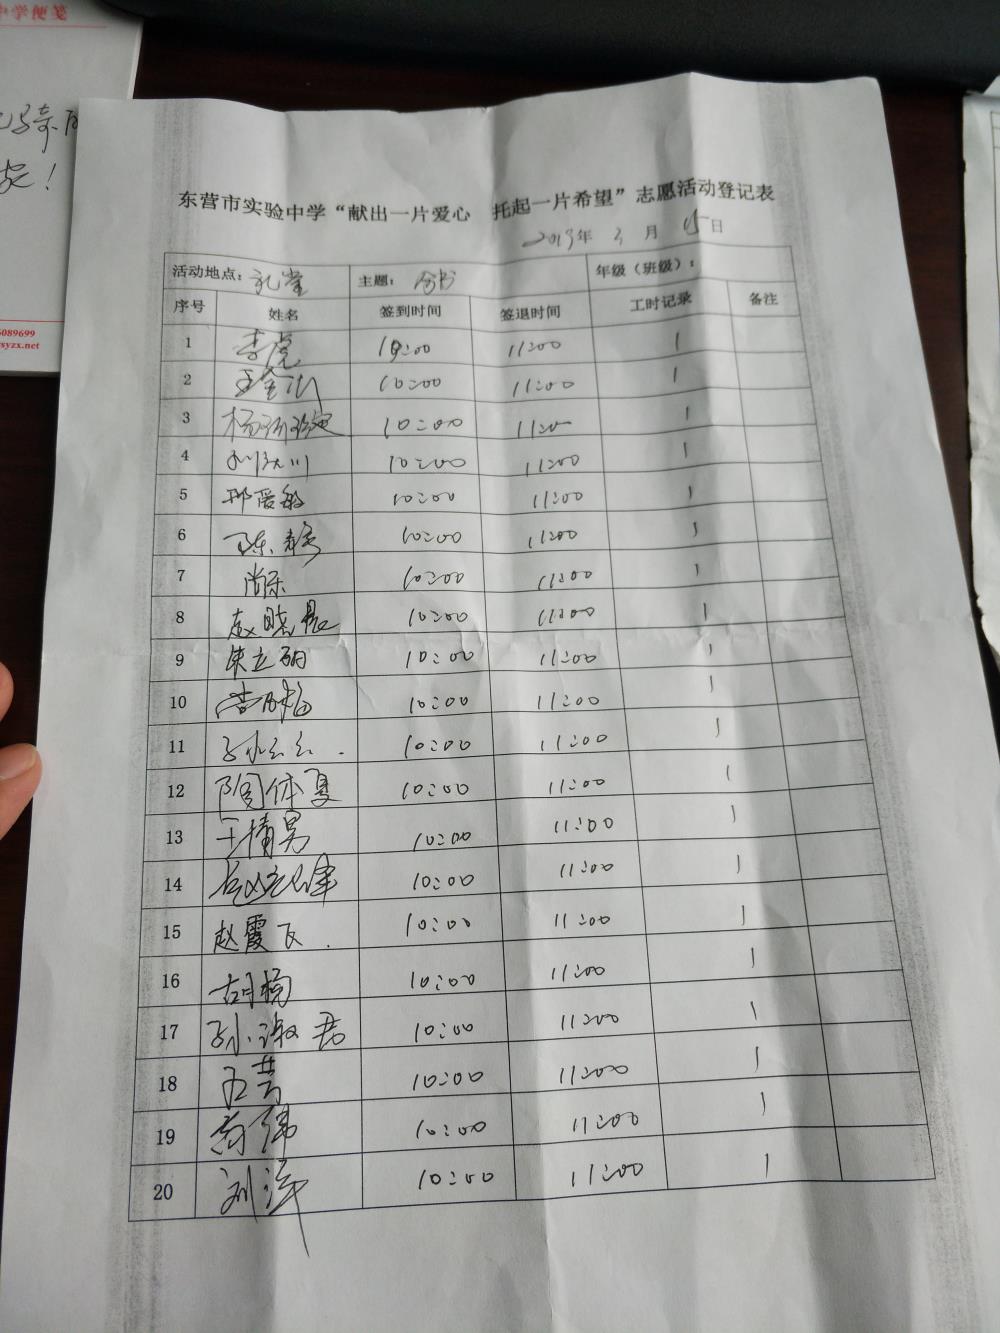 中学便笺
家！
6089699
syzx.net
东营市实验中学“献出一片爱心 托起一片希望”志愿活动登记表
2019年 3 月 15日
活动地点：礼堂 主题： 年级（班级）：
序号 姓名 签到时间 签退时间 工时记录 备注
1 李虎 10:00 11:00 1
2 10:00 11:00 1
3 杨 10:00 11:00 1
4 10:00 11:00 1
5 邢爱敏 10:00 11:00 1
6 陈 10:00 11:00 1
7 尚乐 10:00 11:00 1
8 赵晓晨 10:00 11:00 1
9 朱立明 10:00 11:00 1
10 10:00 11:00 1
11 孙云云. 10:00 11:00 1
12 陶体夏 10:00 11:00 1
13 王倩男 10:00 11:00 1
14 10:00 11:00 1
15 赵霞飞. 10:00 11:00 1
16 胡楠 10:00 11:00 1
17 孙淑君 10:00 11:00 1
18 王芸 10:00 11:00 1
19 尚伟 10:00 11:00 1
20 刘洋 10:00 11:00 1